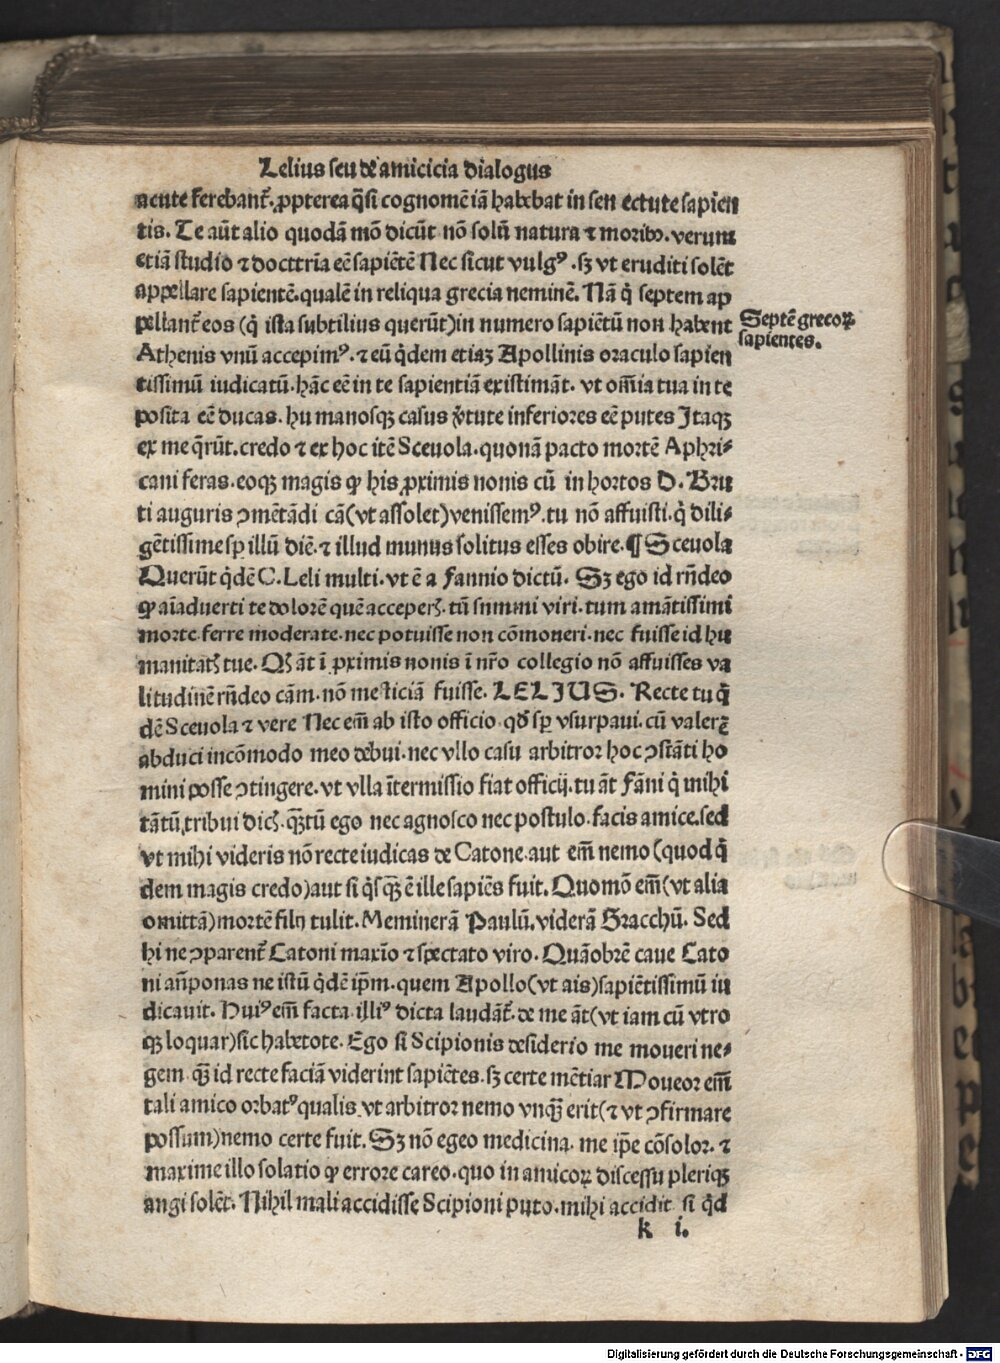 Lelius seu de amicicia dialogus
acute ferebant᷑. ꝓpterea q̄si cognomē iā habebat in sen ectute sapien
tis. Te aūt alio quodā mō dicūt nō solū natura ⁊ moribꝰ. verum
etiā studio ⁊ docttrīa eē sapiētē Nec sicut vulgꝰ. sꝫ vt eruditi solēt
appellare sapientē. qualē in reliqua grecia neminē. Nā q̇ septem ap
pellant᷑ eos (q̇ ista subtilius querūt) in numero sapiētū non habent
Septē grecoꝝ
sapientes.
Athenis vnū accepimꝰ. ⁊ eū q̇dem etiaꝫ Apollinis oraculo sapien
tissimū iudicatū. hāc eē in te sapientiā existimāt. vt oīa tua in te
posita eē ducas. hu manosqꝫ casus v̓tute inferiores eē putes Itaqꝫ
ex me q̄rūt. credo ⁊ ex hoc itē Sceuola. quonā pacto mortē Aphri⸗
cani feras. eoqꝫ magis ꝙ his ꝓximis nonis cū in hortos D. Bru
ti auguris ↄmētādi cā (vt assolet) venissemꝰ. tu nō affuisti. q̇ dili⸗
gētissime sꝑ illū diē. ⁊ illud munus solitus esses obire. ¶ Sceuola
Querūt q̇dē C. Leli multi. vt ē a Fannio dictū. Sꝫ ego id rn̄deo
ꝙ aīaduerti te dolorē quē acceperꝭ. tū summi viri. tum amātissimi
morte ferre moderate. nec potuisse non cōmoueri. nec fuisse id hu
manitatꝭ tue. Qꝭ āt ī ꝓximis nonis ī nr̄o collegio nō affuisses va
litudinē rn̄deo cām. nō mesticiā fuisse. LELIUS. Recte tu q̇
dē Sceuola ⁊ vere Nec em̄ ab isto officio qđ sꝑ vsurpaui. cū valerē
abduci incōmodo meo debui. nec vllo casu arbitror hoc ↄstāti ho
mini posse ↄtingere. vt vlla ītermissio fiat officij. tu āt Fāni q̇ mihi
tātū tribui dicꝭ. qꝫtū ego nec agnosco nec postulo. facis amice. sed
vt mihi videris nō recte iudicas de Catone. aut em̄ nemo (quod q̇
dem magis credo) aut si q̇sqꝫ ē ille sapiēs fuit. Quomō em̄ (vt alia
omittā) mortē filij tulit. Meminerā Paulū. viderā Gracchū. Sed
hi ne ↄparent᷑ Catoni maxīo ⁊ spectato viro. Quāobrē caue Cato
ni an̄ponas ne istū q̇dē ip̄m. quem Apollo (vt ais) sapiētissimū iu
dicauit. Huiꝰ em̄ facta illiꝰ dicta laudāt᷑. de me āt (vt iam cū vtro
qꝫ loquar) sic habetote. Ego si Scipionis desiderio me moueri ne⸗
gem qꝫ id recte faciā viderint sapiētes. sꝫ certe mētiar Moueor em̄
tali amico orbatꝰ qualis vt arbitror nemo vnqꝫ erit (⁊ vt ↄfirmare
possum) nemo certe fuit. Sꝫ nō egeo medicina. me ip̄e cōsolor. ⁊
maxime illo solatio ꝙ errore careo. quo in amicoꝝ discessu pleriqꝫ
angi solēt. Nihil mali accidisse Scipioni puto. mihi accidit si q̇d
k i.
Digitalisierung gefördert durch die Deutsche Forschungsgemeinschaft - DFG